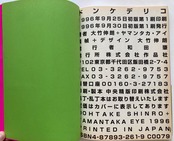 ンケデリコ
1996年9月25日初版第1刷印刷
1996年9月30日初版第1刷発行
著者 大竹伸朗+ヤマンタカ・アイ
編+デザイン 大竹伸朗
発行者 和田
発行所 株式会社作品社
102東京都千代田区飯田橋2-7-4
TEL 03-3262-9753
FAX 03-3262-9757
振替口座 00160-3-27183
印刷・製本 中央精版印刷株式会社
丁・乱丁本はお取り替えいたします
価はカバーに表示してあります
OHTAKE SHINRO+
AMANTAKA EYE 1996
PRINTED IN JAPAN
SBN4-87893-261-9 C0079